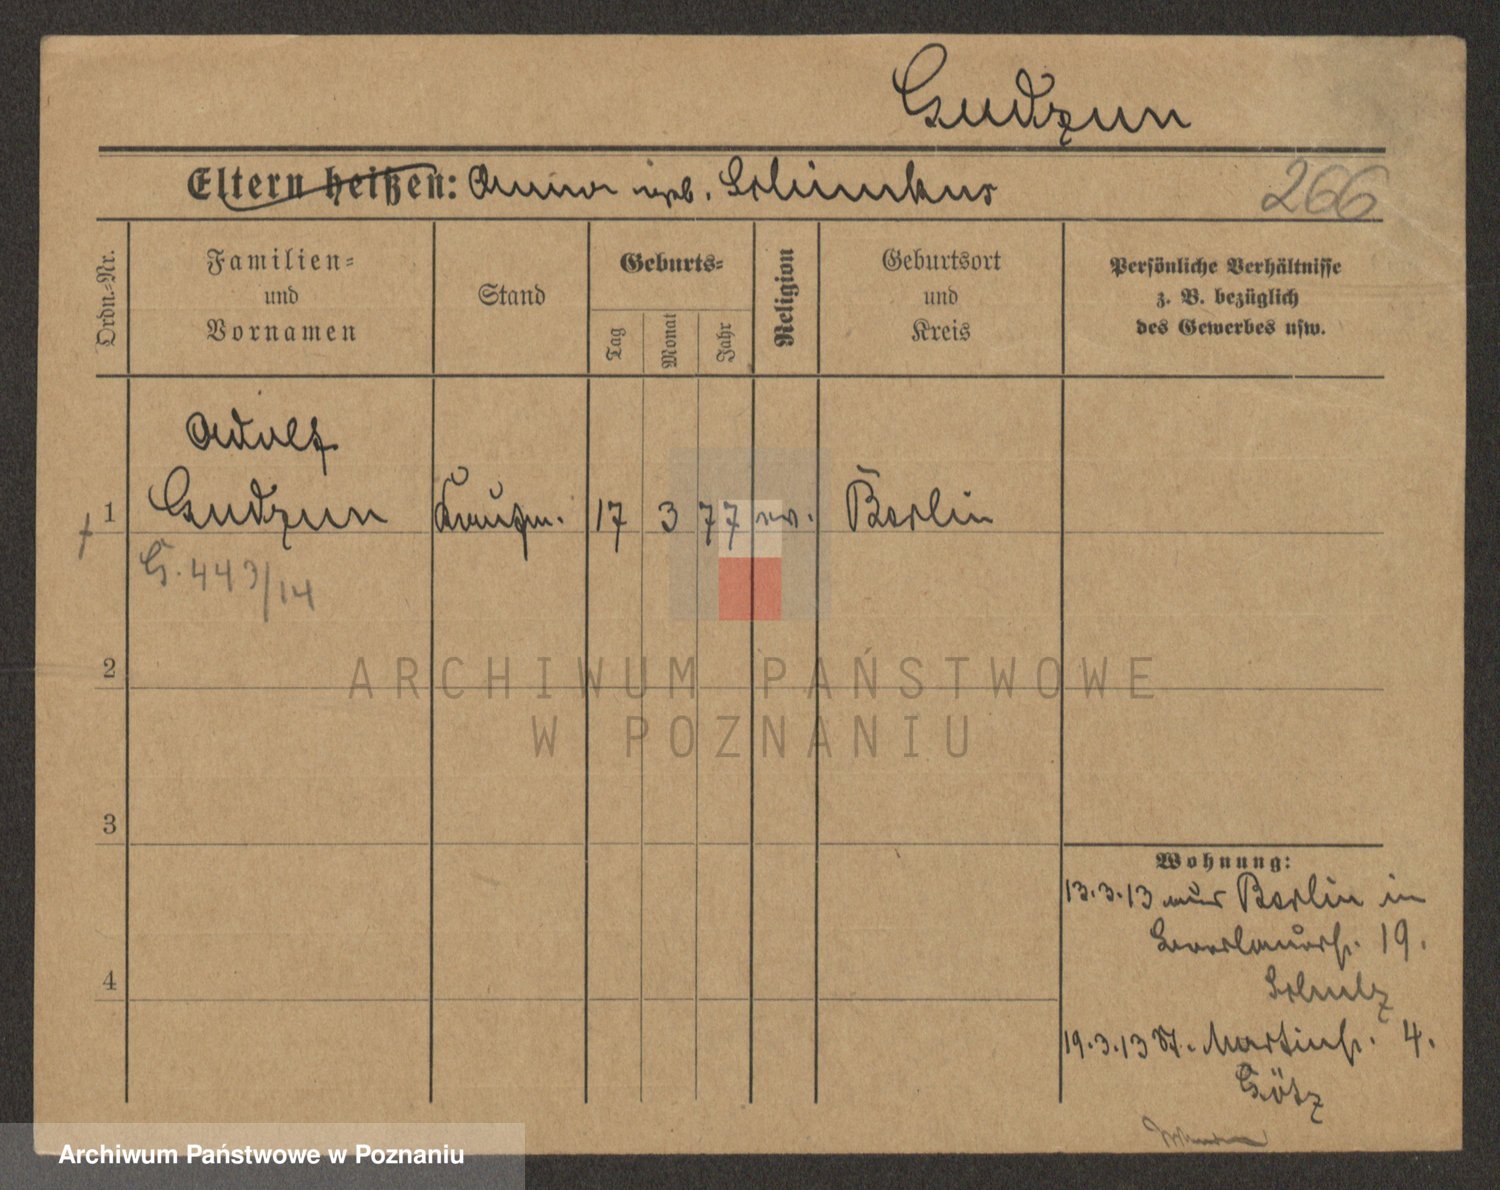 Gudzun
Eltern heißen: Anna geb. Schimkus
266
Ordn.-Nr.
Familien-
und
Vornamen
Stand
Geburts-
Tag
Monat
Jahr
Religion
Geburtsort
und
Kreis
Persönliche Verhältnisse
z. B. bezüglich
des Gewerbes usw.
Adolf
1 Gudzun Kaufm. 17 3 77 ev. Berlin
G. 443/14
2
ARCHIWUM PAŃSTWOWE
W POZNANIU
3
Wohnung:
13.3.13 aus Berlin in
19.
4
Schulz
19.3.13 St. Martinstr. 4.
Götz
Archiwum Państwowe w Poznaniu